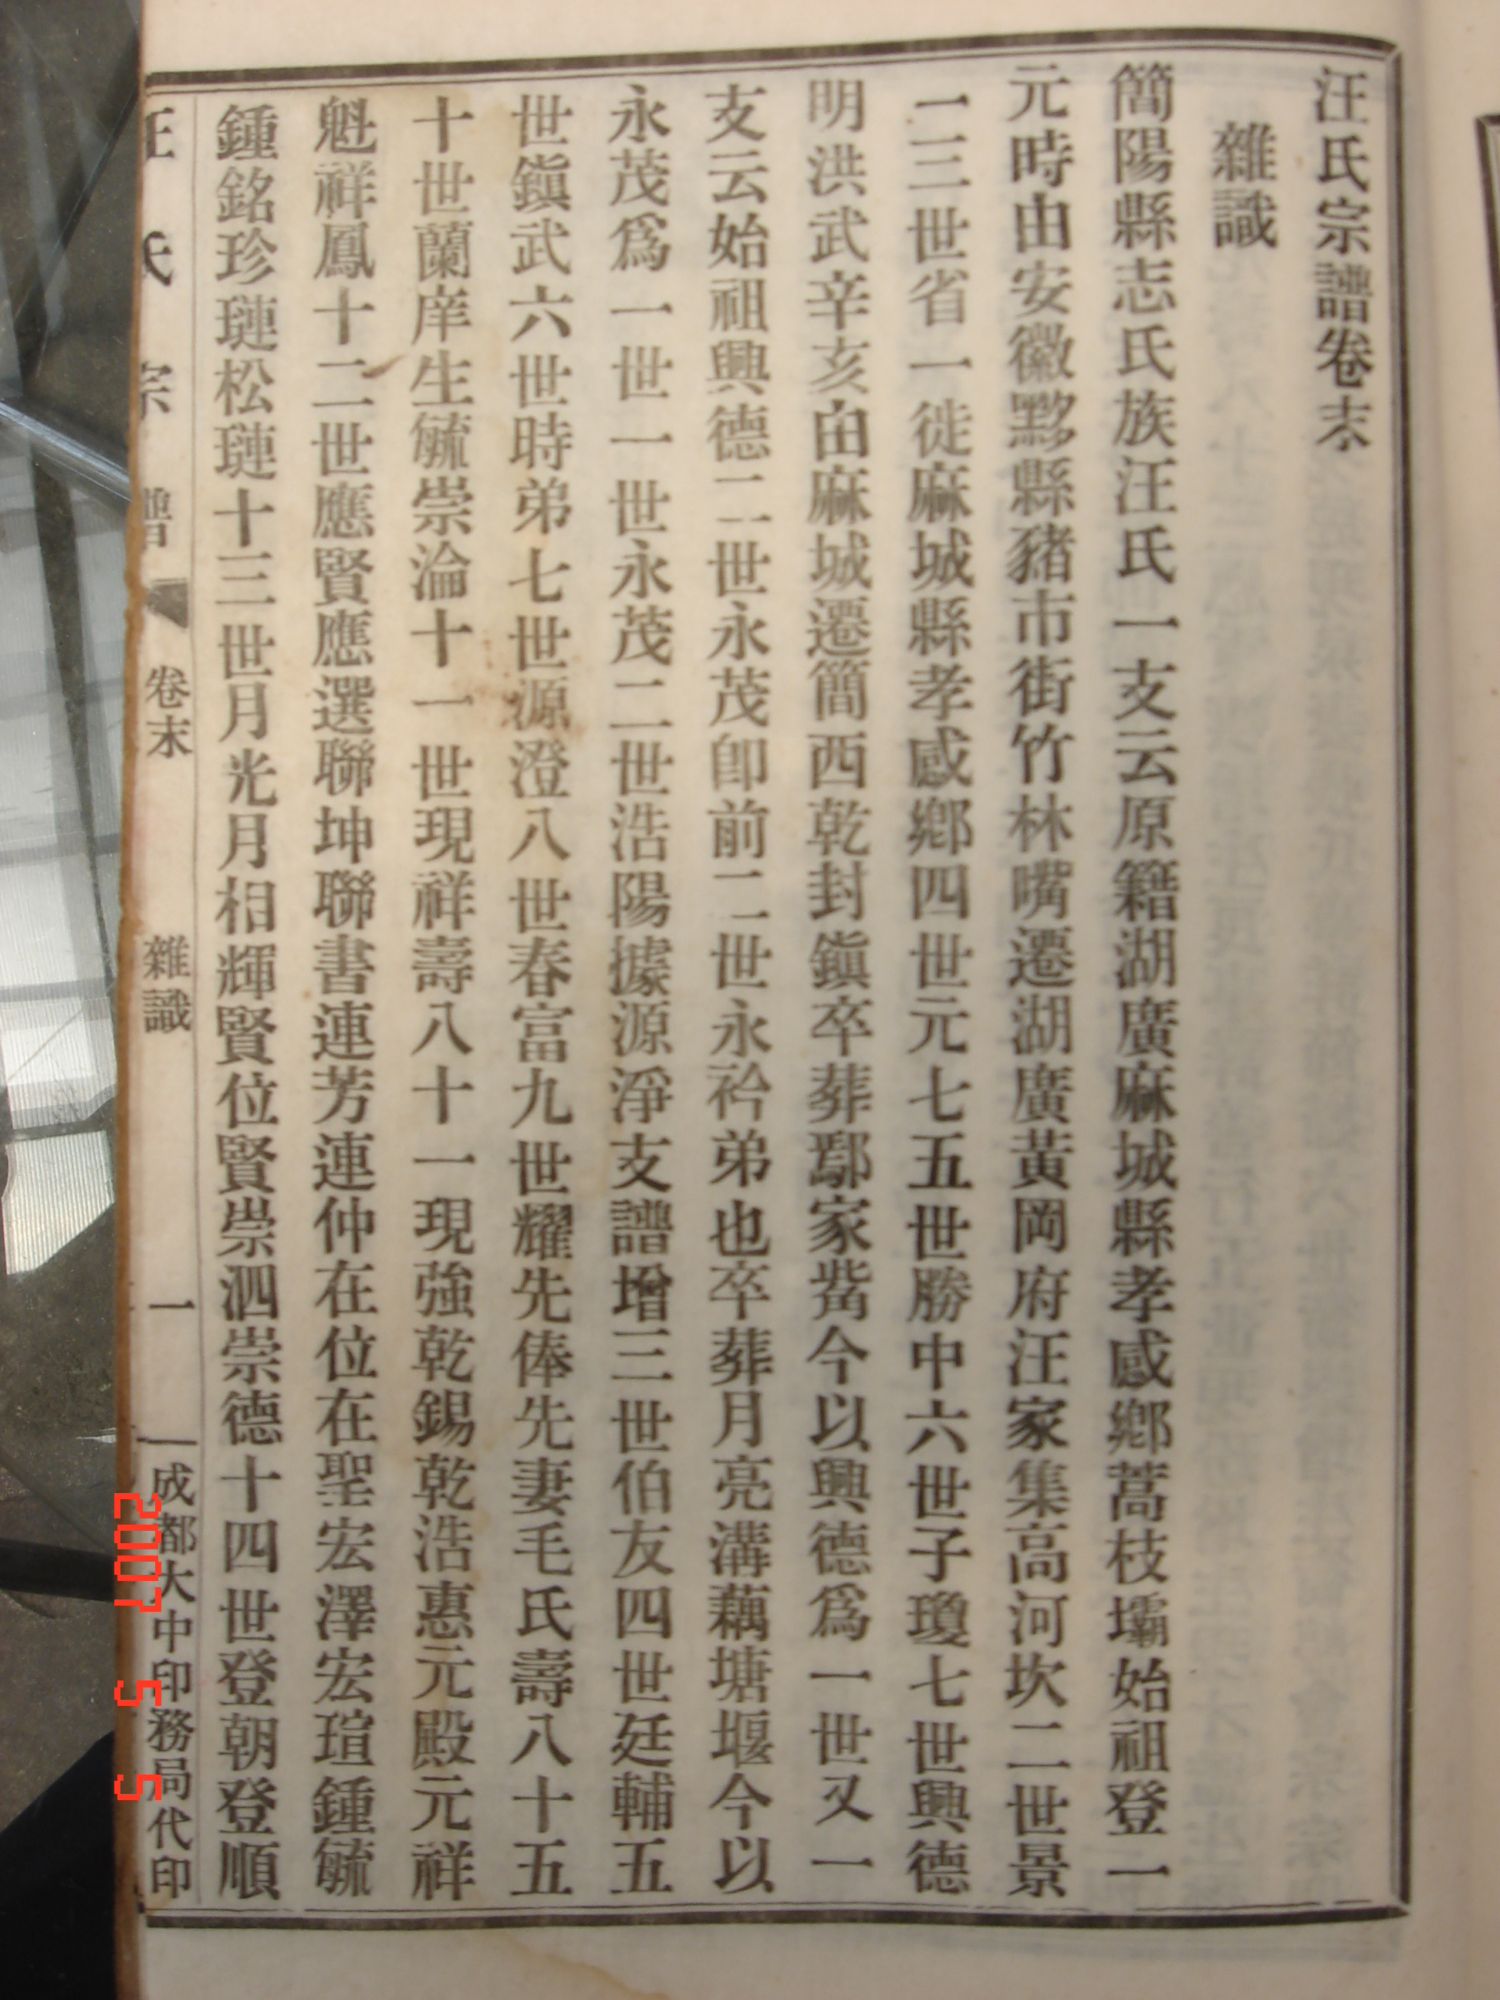 汪氏宗譜卷末
雜識
簡陽縣志氏族汪氏一支云原籍湖廣麻城縣孝感鄉蒿枝壩始祖登一
元時由安徽黟縣豬市街竹林嘴遷湖廣黃岡府汪家集高河坎二世景
一三世省一徙麻城縣孝感鄉四世元七五世勝中六世子瓊七世興德
明洪武辛亥由麻城遷簡西乾封鎭卒葬鄢家嵛今以興德爲一世又一
支云始祖興德二世永茂卽前二世永衿弟也卒葬月亮溝藕塘堰今以
永茂爲一世一世永茂二世浩陽據源淨支譜增三世伯友四世廷輔五
世鎭武六世時弟七世源澄八世春富九世耀先俸先妻毛氏壽八十五
十世蘭庠生毓崇淪十一世現祥壽八十一現強乾錫乾浩惠元殿元祥
魁祥鳳十二世應賢應選聯坤聯書連芳連仲在位在聖宏澤宏瑄鍾毓
鍾銘珍璉松璉十三世月光月相輝賢位賢崇泗崇德十四世登朝登順
汪氏宗譜
卷末
雜識
一
成都大中印務局代印
2007 5 5